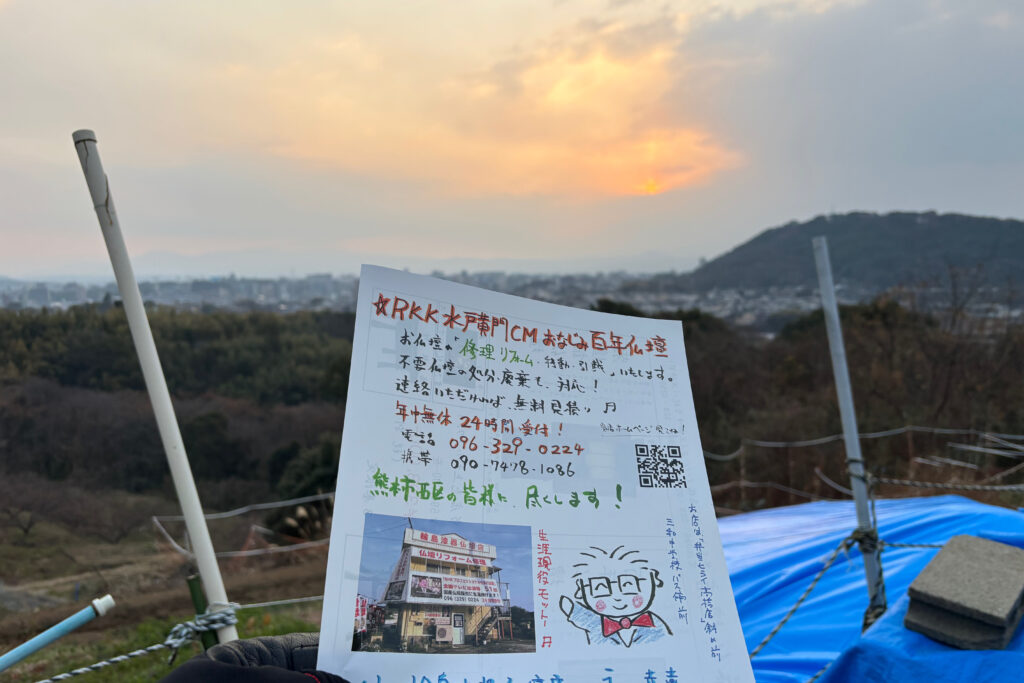 ☆RKK水戸黄門CMおなじみ百年仏壇
お仏壇の「修理リフォーム・移動・引越」いたします。
不要仏壇の処分、廃棄も、対応！
連絡いただければ、無料見積り♬
年中無休 24時間受付！
電話 096-329-0224
携帯 090-7478-1086
熊本市西区の皆様に、尽くします！
輪島漆器仏壇店
仏壇リフォーム修理
生涯現役モットー♬
三和中学校バス停前